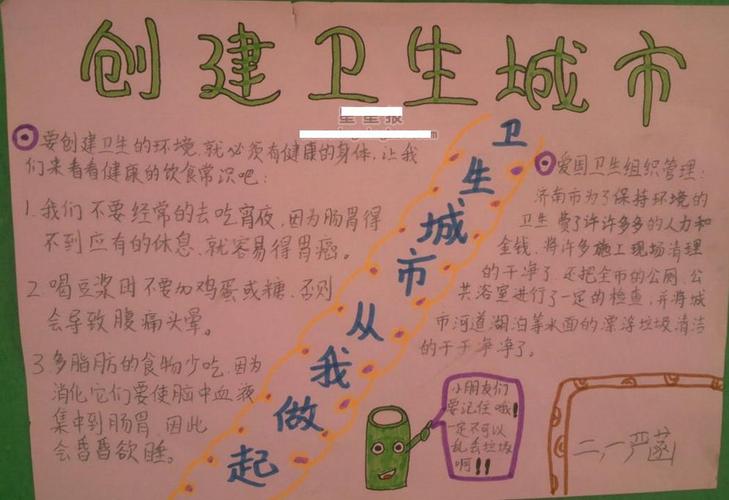 创建卫生城市
星星报
要创建卫生的环境,就必须有健康的身体,让我
们来看看健康的饮食常识吧:
1.我们不要经常的去吃宵夜,因为肠胃得
不到应有的休息,就容易得胃癌。
2.喝豆浆时不要加鸡蛋或糖,否则
会导致腹痛头晕。
3.多脂肪的食物少吃,因为
消化它们要使脑中血液
集中到肠胃,因此
会昏昏欲睡。
卫生城市从我做起
爱国卫生组织管理:
济南市为了保持环境的
卫生费了许许多多的人力和
金钱,将许多施工现场清理
的干净了,还把全市的公厕、公
共浴室进行了一定的检查,并将城
市河道湖泊等水面的漂浮垃圾清洁
的干干净净了。
小朋友们
要记住哦!
一定不可以
乱丢垃圾
啊!!
二,一严菡